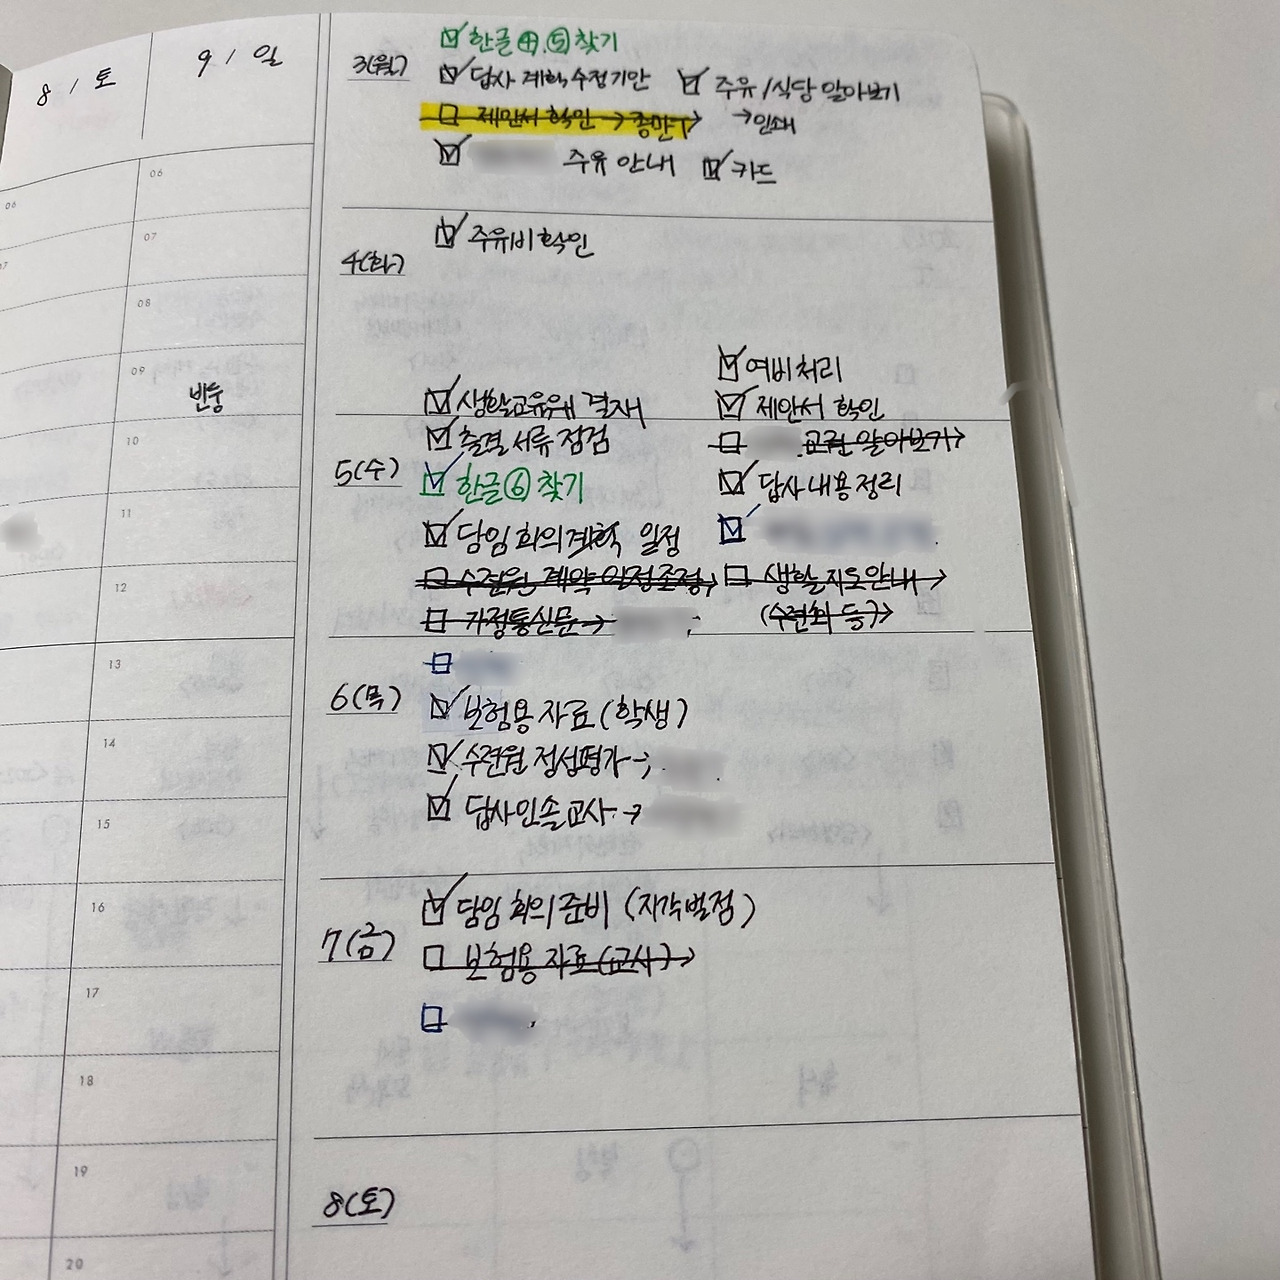 8 / 토
9 / 일
06
06
07
07
08
09
반중
10
11
12
13
14
15
16
17
18
19
20
3(월)
한글 ④,⑤ 찾기
답사 계획 수정기안
주유/식당 알아보기
제안서 확인 →
→인쇄
주유 안내
카드
4(화)
주유비 확인
생활교육위 결재
여비처리
제안서 확인
5(수)
출결 서류 점검
교권 알아보기→
한글 ⑥ 찾기
답사 내용 정리
담임 회의 계획 일정
수련원 계약 일정조정→
생활지도안내→
가정통신문→
(수련회 등)→
6(목)
보험용 자료 (학생)
수련원 정성평가→
답사인솔교사→
7(금)
담임 회의 준비 (지각벌점)
보험용 자료 (교사)→
8(토)